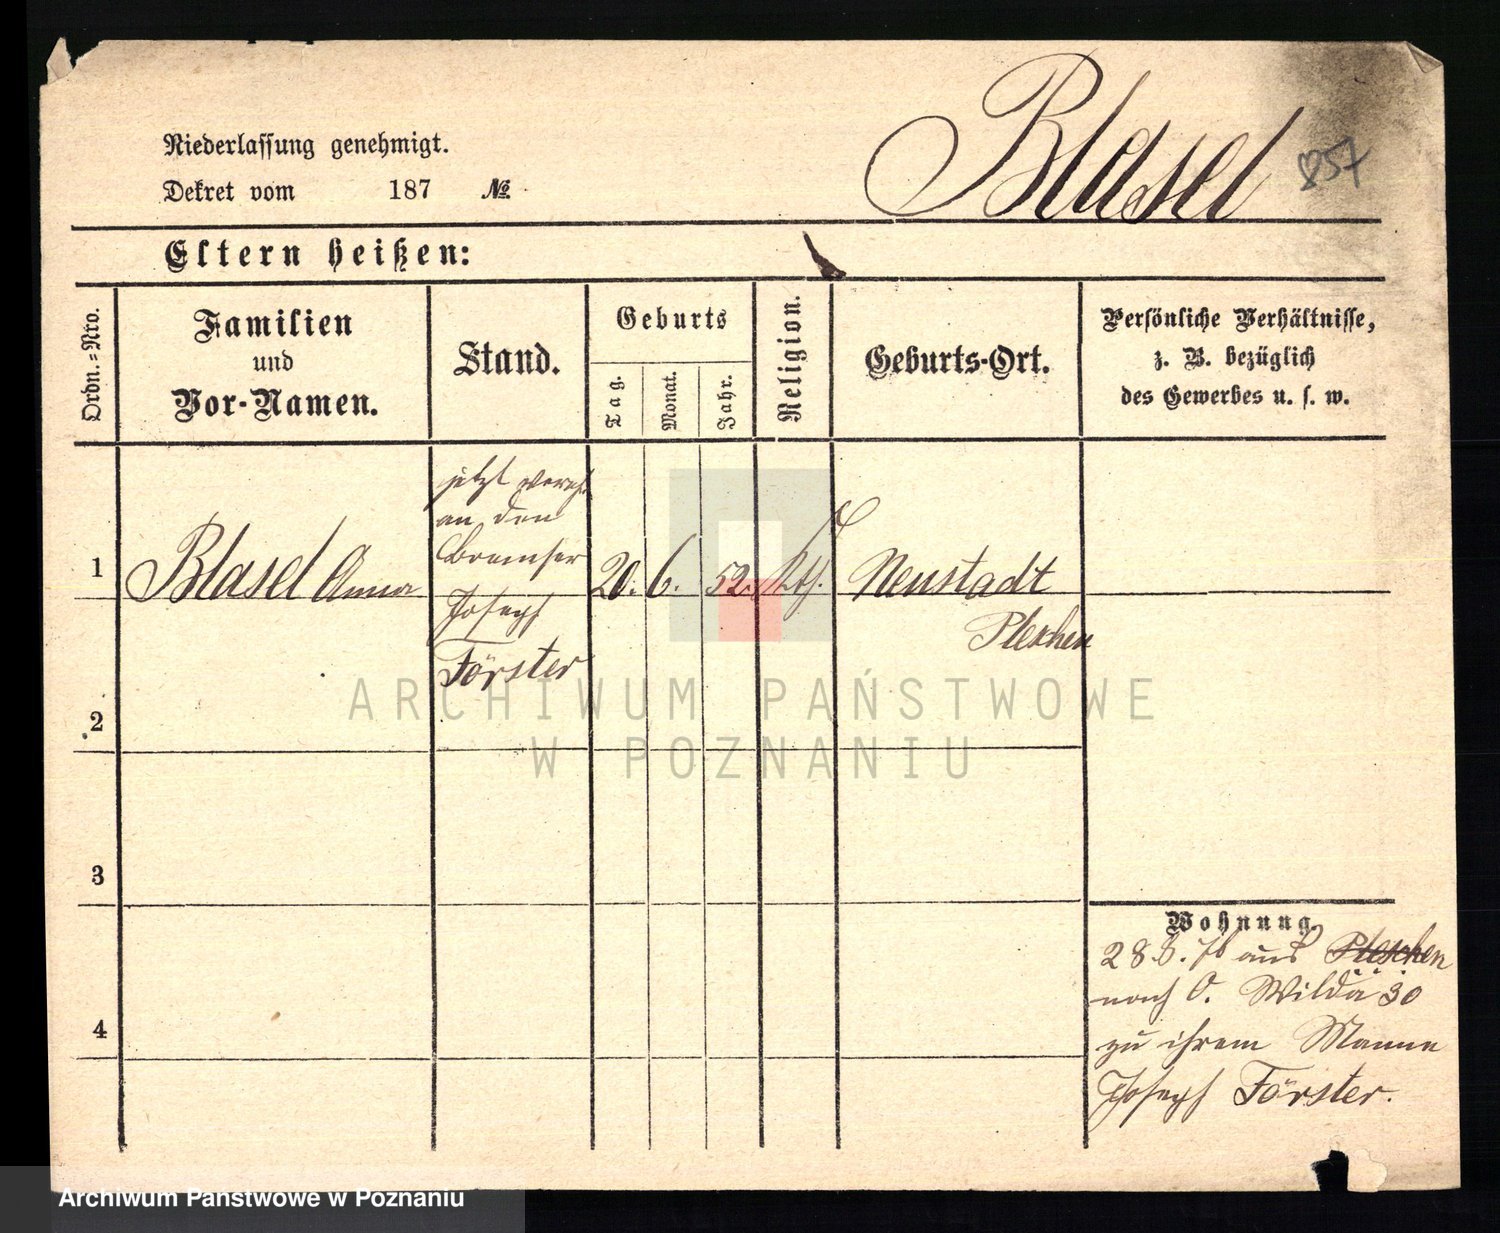 Blasel 857
Niederlassung genehmigt.
Dekret vom 187 №
Eltern heißen:
Ordn.=Nro.
Familien
und
Vor-Namen.
Stand.
Geburts
Tag.
Monat.
Jahr.
Religion.
Geburts-Ort.
Persönliche Verhältnisse,
z. B. bezüglich
des Gewerbes u. s. w.
jetzt vereh.
an den
Bremser
Joseph
Förster
1 Blasel Anna 20. 6. 52. kth. Neustadt
Pleschen
2
3
4
Wohnung.
28.6.76 aus Pleschen
nach O. Wilda 30
zu ihrem Manne
Joseph Förster.
ARCHIWUM PAŃSTWOWE
W POZNANIU
Archiwum Państwowe w Poznaniu